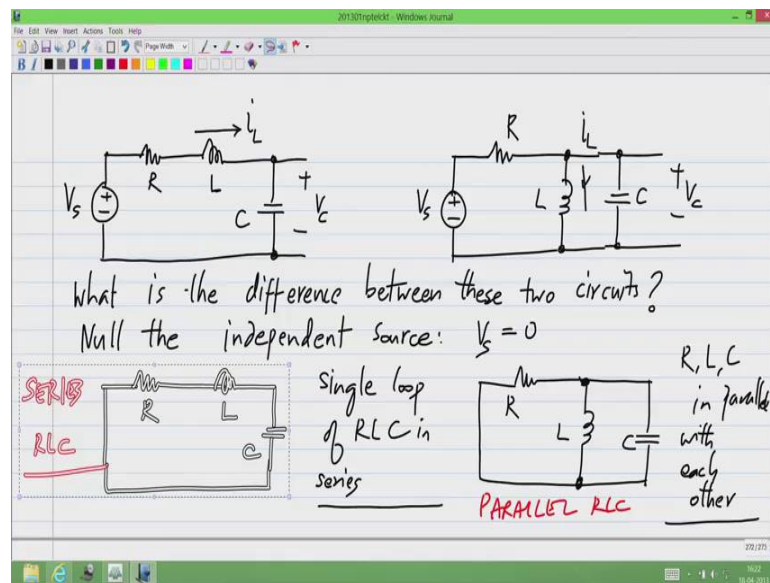 201301nptelckt - Windows Journal
File Edit View Insert Actions Tools Help
Page Width
B I
i_L
R L
V_s + - C + V_c -
R i_L
V_s + - L C + V_c -
What is the difference between these two circuits?
Null the independent source: V_s = 0
SERIES
RLC
R L
C
single loop
of RLC in
series
R
L C
PARALLEL RLC
R, L, C
in parallel
with
each
other
272/273
16:22
18-04-2013